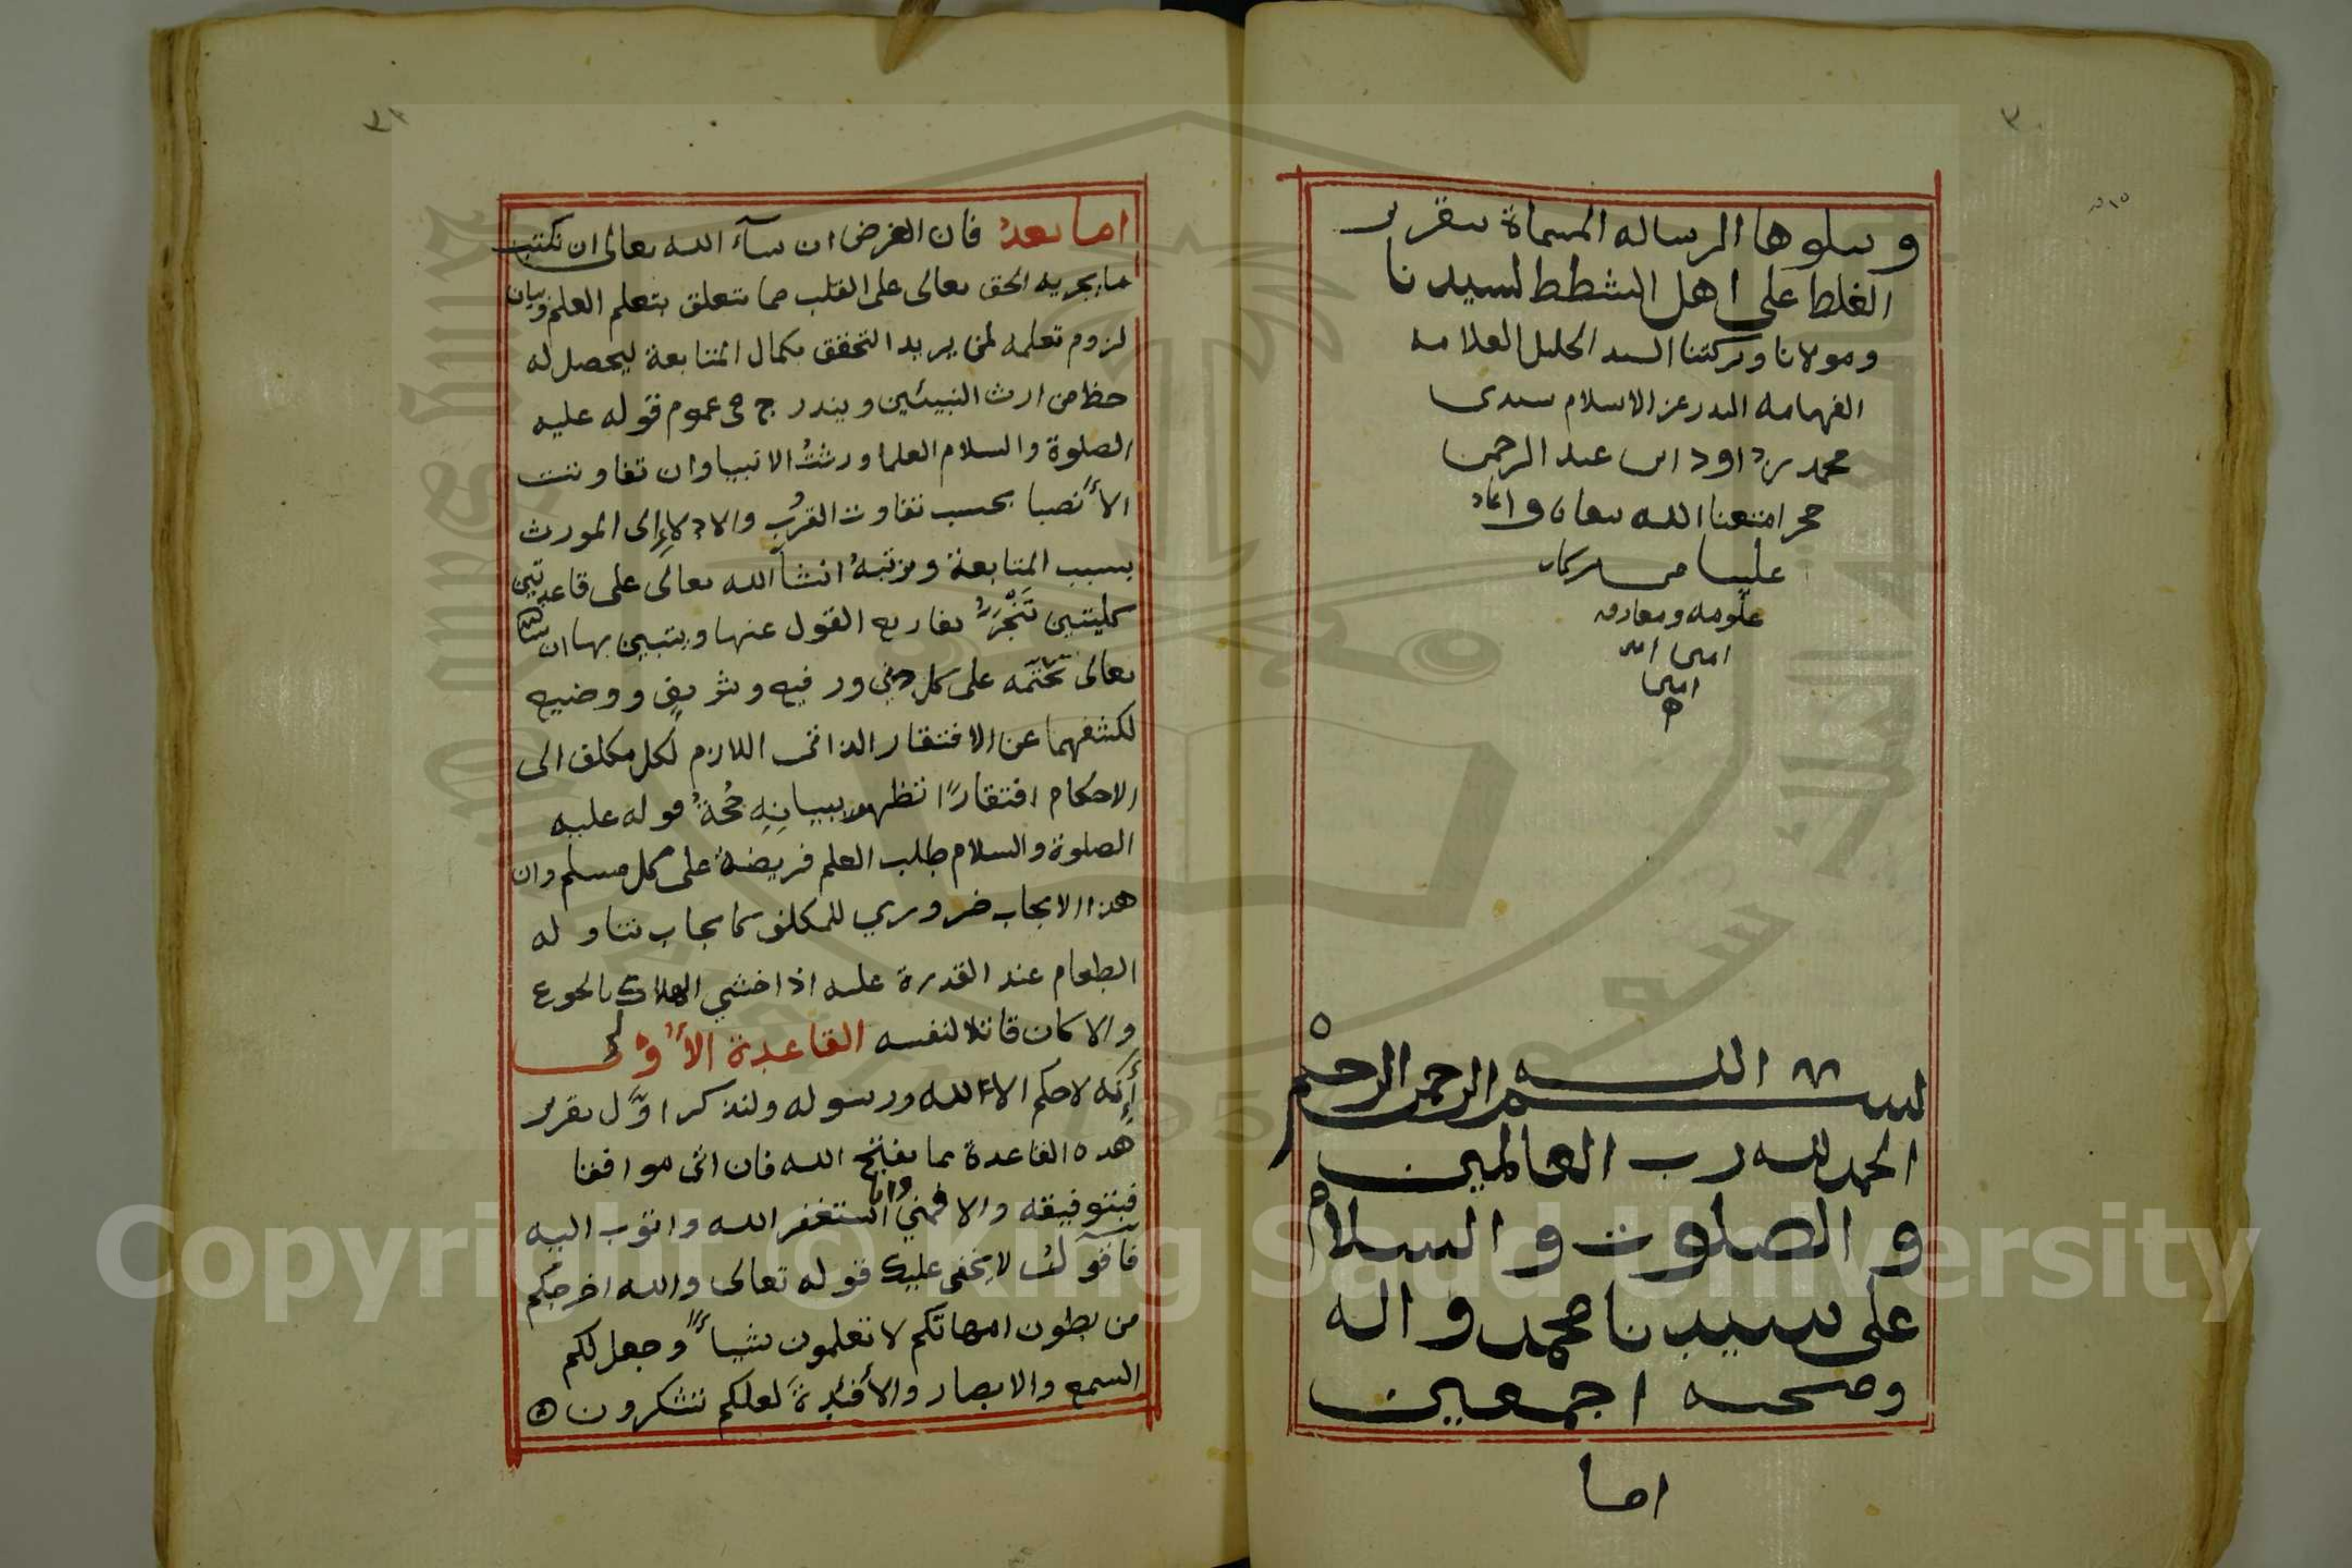 ويتلوها الرساله المسماة بتقرير
الغلط على اهل الشطط لسيدنا
ومولانا وبركتنا السيد الجليل العلامه
الفهامه البدر عز الاسلام سيدى
محمد بن داود ابن عبد الرحمن
حجر امتعنا الله بحياته واعاد
علينا من بركات
علومه ومعارفه
امين امين
امين
بسم الله الرحمن الرحيم
الحمد لله رب العالمين
والصلوة والسلام
على سيدنا محمد واله
وصحبه اجمعين
اما
اما بعد فان الغرض ان شآء الله تعالى ان نكتب
ما يجريه الحق تعالى على القلب مما تتعلق بتعلم العلم وبيان
لزوم تعلمه لمن يريد التحقق بكمال المتابعة ليحصل له
حظ من ارث النبيئين ويندرج في عموم قوله عليه
الصلوة والسلام العلما ورثتُ الانبيا وان تفاوتت
الأنصبا بحسب تفاوت القرب والادلاءِ الى المورث
بسبب المتابعة ونرتبهُ انشآ الله تعالى على قاعدتين
كليتين تفاريع القول عنها ويتبين بها ان شآء الله
تعالى تحتمه على كل دني ورفيع وشريف ووضيع
لكشفهما عن الافتقار الذاتى اللازم لكل مكلف الى
الاحكام افتقارًا تظهر ببيانِهِ قوله عليه
الصلوة والسلام طلب العلم فريضة على كل مسلم وان
هذا الايجاب ضروري للمكلف كايجاب تناوله
الطعام عند القدرة عليه اذا خشي الهلاك بالجوع
والا كان قاتلا لنفسه القاعدة الأُولى
أنه لا حكم الا لله ورسوله ولنذكر اوّل تقرير
هذه القاعدة بما يفتح الله فان اتى موافقا
فبتوفيقه والا فمني وانا استغفر الله واتوب اليه
فأقول لا يخفى عليك قوله تعالى والله اخرجكم
من بطون امهاتكم لا تعلمون شيأً وجعل لكم
السمع والابصار والأفئِدةَ لعلكم تشكرون
Copyright © King Saud University